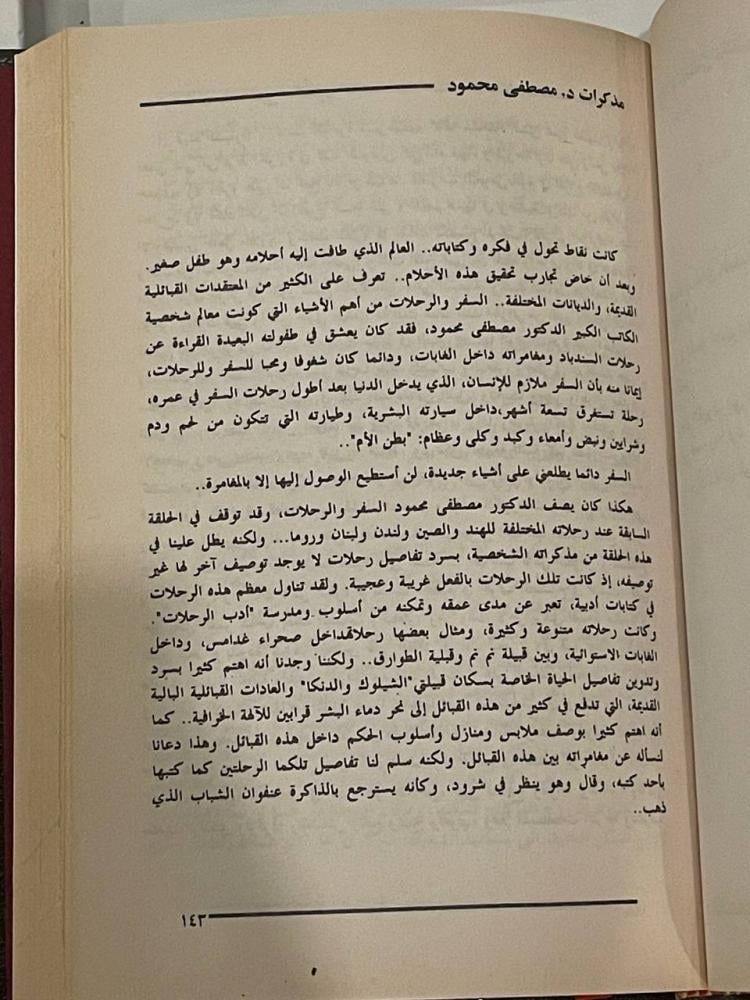 مذكرات د. مصطفى محمود
كانت نقاط تحول في فكره وكتاباته.. العالم الذي طافت إليه أحلامه وهو طفل صغير.
وبعد أن خاض تجارب تحقيق هذه الأحلام.. تعرف على الكثير من المعتقدات القبائلية
القديمة، والديانات المختلفة.. السفر والرحلات من أهم الأشياء التي كونت معالم شخصية
الكاتب الكبير الدكتور مصطفى محمود، فقد كان يعشق في طفولته البعيدة القراءة عن
رحلات السندباد ومغامراته داخل الغابات، ودائما كان شغوفا ومحبا للسفر وللرحلات،
إيمانا منه بأن السفر ملازم للإنسان، الذي يدخل الدنيا بعد أطول رحلات السفر في عمره،
رحلة تستغرق تسعة أشهر،داخل سيارته البشرية، وطيارته التي تتكون من لحم ودم
وشرايين ونبض وأمعاء وكبد وكلى وعظام: "بطن الأم"..
السفر دائما يطلعني على أشياء جديدة، لن أستطيع الوصول إليها إلا بالمغامرة..
هكذا كان يصف الدكتور مصطفى محمود السفر والرحلات، وقد توقف في الحلقة
السابقة عند رحلاته المختلفة للهند والصين ولندن ولبنان وروما... ولكنه يطل علينا في
هذه الحلقة من مذكراته الشخصية، بسرد تفاصيل رحلات لا يوجد توصيف آخر لها غير
توصيفه، إذ كانت تلك الرحلات بالفعل غريبة وعجيبة. ولقد تناول معظم هذه الرحلات
في كتابات أدبية، تعبر عن مدى عمقه وتمكنه من أسلوب ومدرسة "أدب الرحلات".
وكانت رحلاته متنوعة وكثيرة، ومثال بعضها رحلاتهداخل صحراء غدامس، وداخل
الغابات الاستوائية، وبين قبيلة نم نم وقبلية الطوارق.. ولكننا وجدنا أنه اهتم كثيرا بسرد
وتدوين تفاصيل الحياة الخاصة بسكان قبيلتي"الشيلوك والدنكا" والعادات القبائلية البالية
القديمة، التي تدفع في كثير من هذه القبائل إلى نحر دماء البشر قرابين للآلهة الخرافية.. كما
أنه اهتم كثيرا بوصف ملابس ومنازل وأسلوب الحكم داخل هذه القبائل. وهذا دعانا
لنسأله عن مغامراته بين هذه القبائل. ولكنه سلم لنا تفاصيل تلكما الرحلتين كما كتبها
بأحد كتبه، وقال وهو ينظر في شرود، وكأنه يسترجع بالذاكرة عنفوان الشباب الذي
ذهب..
١٤٣